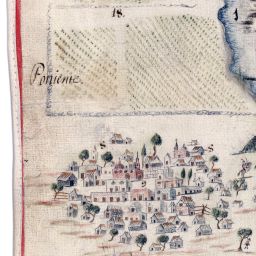 18.
1
Poniente.
8
9